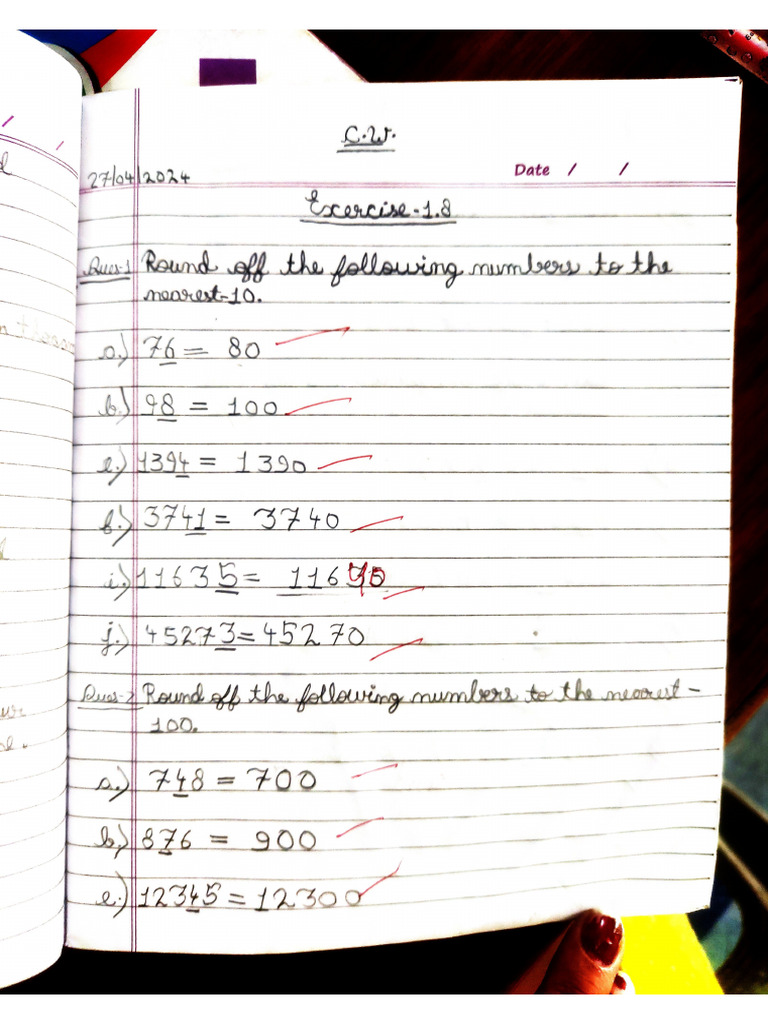 C.W.
27/04/2024
Date / /
Exercise-1.8
Ques-1 Round off the following numbers to the
nearest-10.
a.) 76 = 80
b.) 98 = 100
e.) 1394 = 1390
f.) 3741 = 3740
i.) 11635 = 11640
j.) 45273 = 45270
Ques-2 Round off the following numbers to the nearest-
100.
a.) 748 = 700
b.) 876 = 900
e.) 12345 = 12300